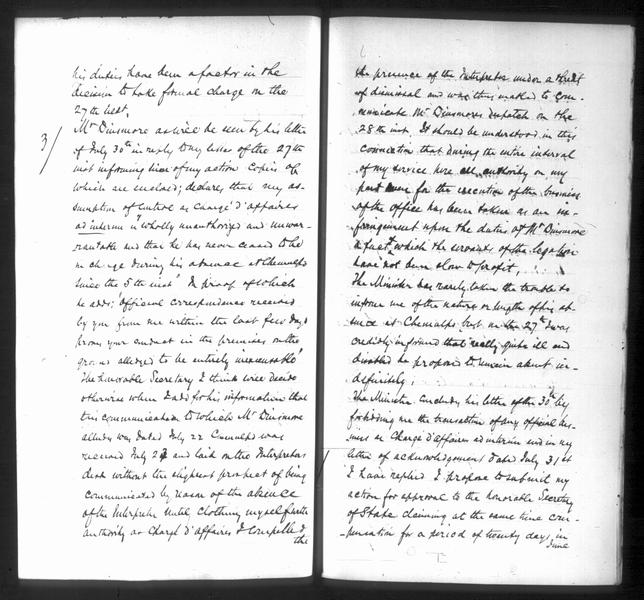 his duties have been a factor in the
decision to take formal charge on the
27th inst.
3/
Mr Dinsmore as will be seen by his letter
of July 30th in reply to my letter of the 27th
inst informing him of my action copies of
which are enclosed; declares that my as-
sumption of control as Chargé d'affaires
ad interim is "wholly unauthorized and unwar-
rantable and that he has never ceased to be
in charge during his absence at Chemulpo
since the 5th inst" In proof of which
he adds; "official correspondence received
by you from me within the last few days
prove your conduct in the premises on the
ground alleged to be entirely inexcusable"
The honorable Secretary I think will decide
otherwise when I add for his information that
this communication to which Mr Dinsmore
alludes was dated July 22 Chemulpo was
received July 24 and laid on the Interpreters
desk without the slightest prospect of being
communicated by reason of the absence
of the Interpreter until clothing myself with
authority as Chargé d'affaires I compelled
the
the presence of the Interpreter under a threat
of dismissal and was thus enabled to com-
municate Mr Dinsmores dispatch on the
28th inst. It should be understood in this
connection that during the entire interval
of my service here all authority on my
part even for the execution of the business
of the office has been taken as an in-
fringement upon the duties of Mr Dinsmore
a fact which the servants of the legation
have not been slow to profit,
The Minister has rarely taken the trouble to
inform me of the nature or length of his ab-
sence at Chemulpo but on the 27th I was
credibly informed that really quite ill and
disabled he proposed to remain absent in-
definitely;
The Minister concludes his letter of the 30th by
forbidding me the transaction of any official bus-
iness as Chargé d'affaires ad interim and in my
letter of acknowledgement dated July 31st
I have replied I propose to submit my
action for approval to the honorable Secretary
of State claiming at the same time com-
pensation for a period of twenty days in
June